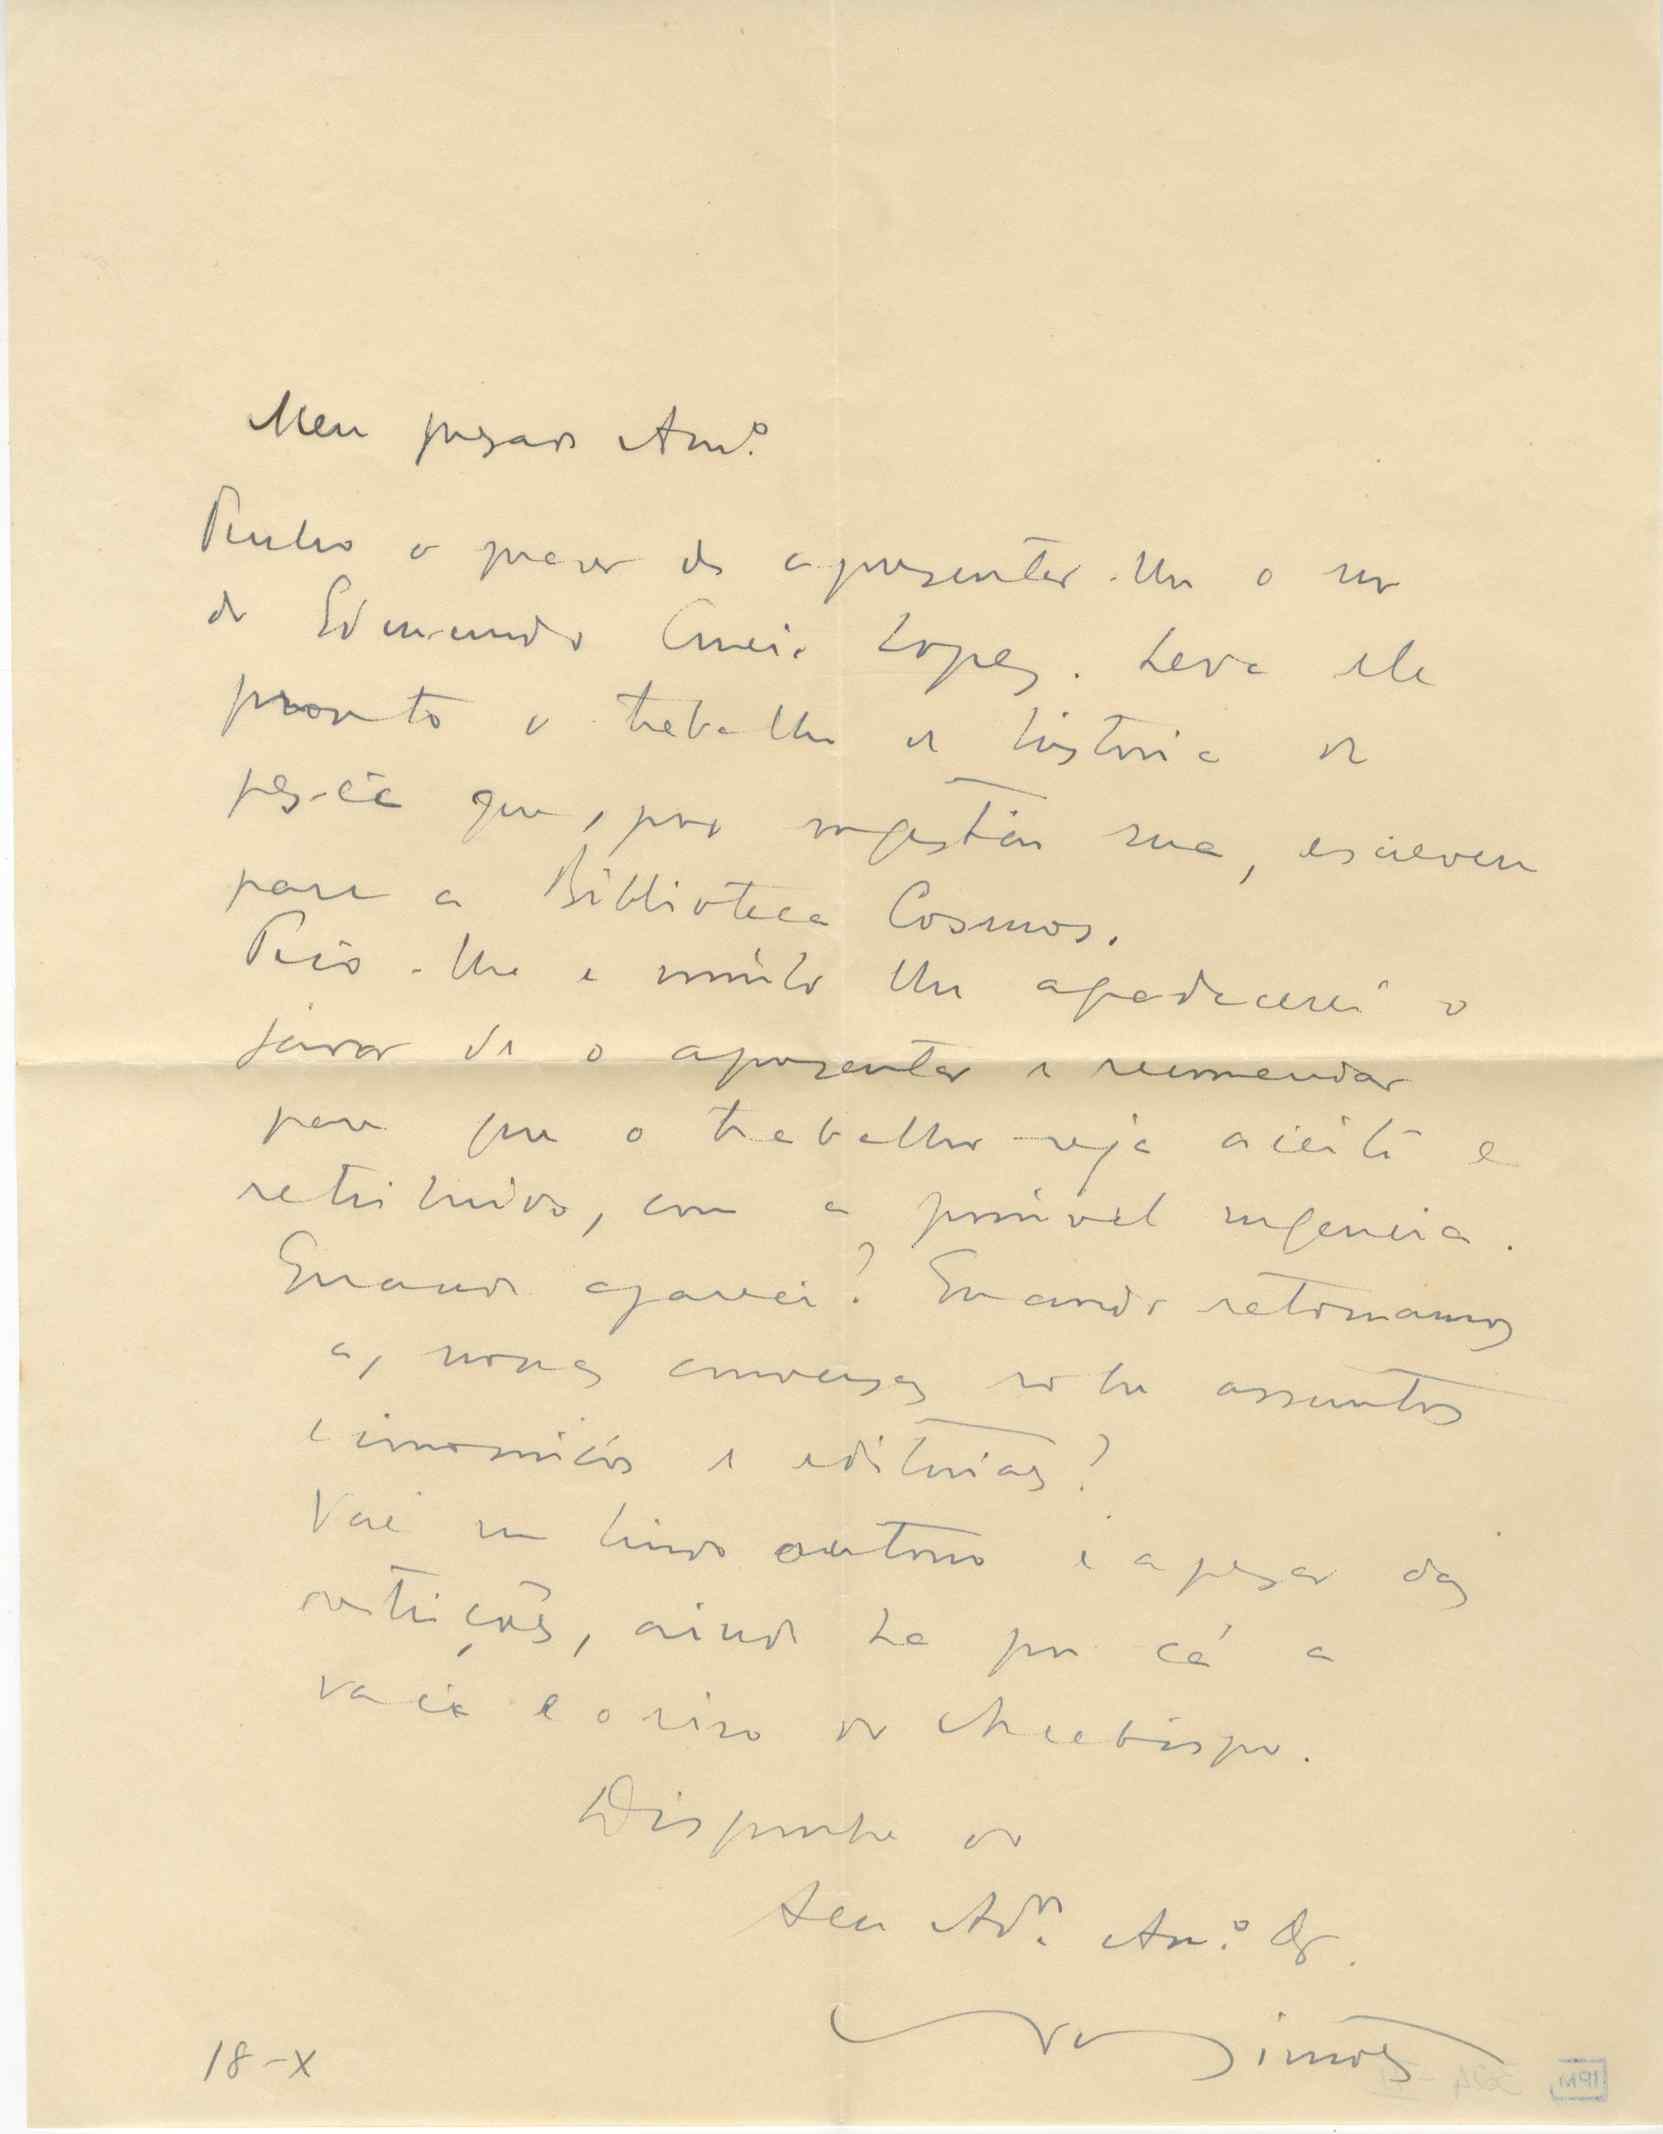 Meu prezado Am.º
Tenho o prazer de apresentar-lhe o sr
dr Edmundo Correia Lopes. Leva ele
pronto o trabalho de historia da
pesca que, por sugestão sua, escreveu
para a Biblioteca Cosmos.
Peço-lhe e muito lhe agradecerei o
favor de o apresentar e recomendar
para que o trabalho seja aceite e
retribuido, com a possivel urgencia.
Quando aparece? Quando retomamos
as nossas conversas sobre assuntos
economicos e editoriaes?
Vae um lindo outono e apesar das
restrições, ainda ha por cá a
vaca e o riso do Arcebispo.
Disponha do
Seu Ad.ºʳ Am.º
Simões
18-X
IPM